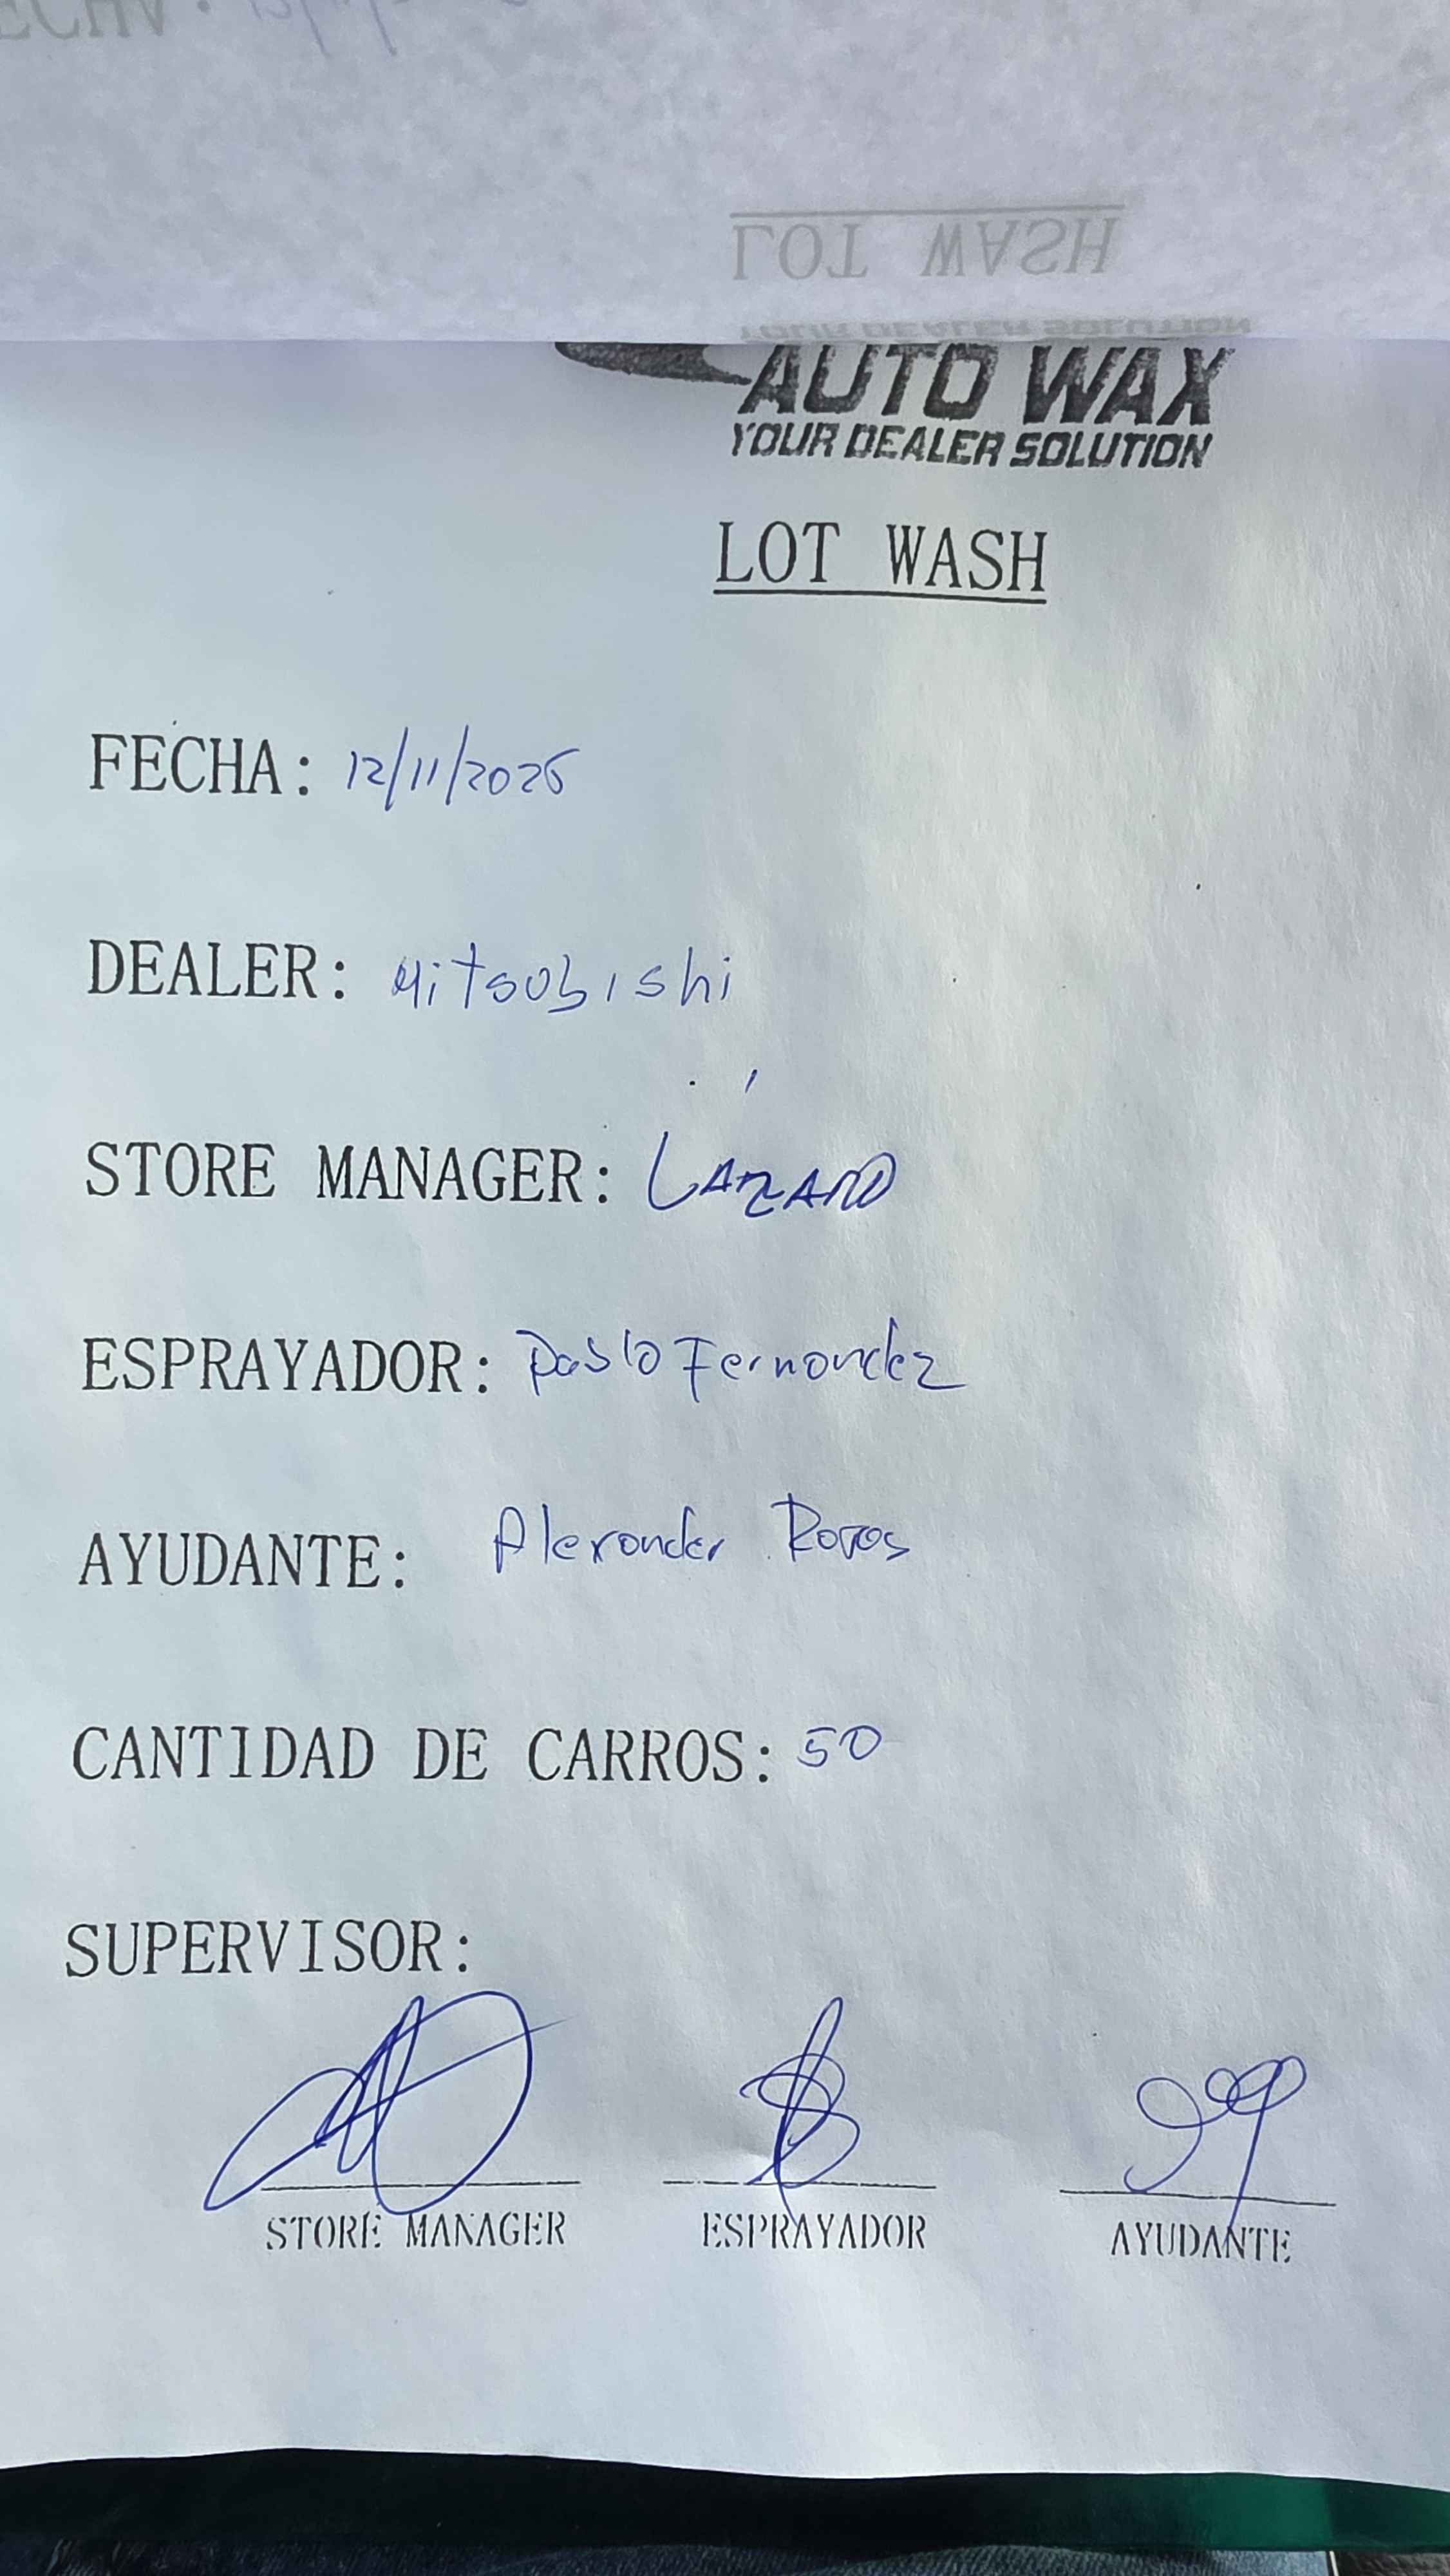 LOT WASH
AUTO WAX
YOUR DEALER SOLUTION
LOT WASH
FECHA: 12/11/2025
DEALER: Mitsubishi
STORE MANAGER: LAZARO
ESPRAYADOR: Pablo Fernandez
AYUDANTE: Alexander Rovos
CANTIDAD DE CARROS: 50
SUPERVISOR:
STORE MANAGER ESPRAYADOR AYUDANTE